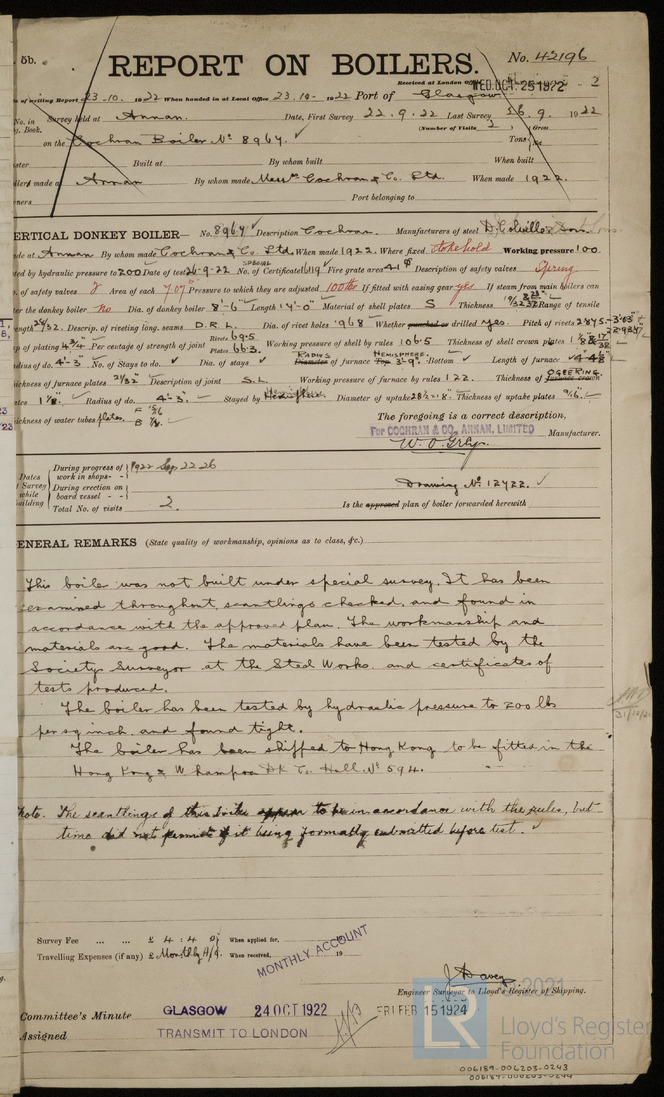 5b. REPORT ON BOILERS. No. 42196
Received at London Office WED. OCT. 25 1922
of writing Report 23-10-1922 When handed in at Local Office 23.10-1922 Port of Glasgow
No. in Survey held at Annan. Date, First Survey 22.9.22 Last Survey 26.9.1922
Book. (Number of Visits 2) Gross
on the Cochran Boiler No 8964. ✓ Tons Net
Built at By whom built When built
made at Annan By whom made Messrs Cochran & Co. Ltd. When made 1922.
Port belonging to
ERTICAL DONKEY BOILER— No. 8964 ✓ Description Cochran. Manufacturers of steel D. Colville & Sons
de at Annan By whom made Cochran & Co. Ltd. When made 1922. Where fixed stokehold Working pressure 100.
ted by hydraulic pressure to 200 Date of test 26-9-22 No. of Certificate Fire grate area 41 Description of safety valves Spring
. of safety valves 2 Area of each 7.07 Pressure to which they are adjusted 100 lbs If fitted with easing gear yes If steam from main boilers can
er the donkey boiler No Dia. of donkey boiler 8'-6" Length Material of shell plates S Thickness Range of tensile
ength Descrip. of riveting long. seams D.R.L. Dia. of rivet holes Whether punched or drilled yes Pitch of rivets
p of plating Per centage of strength of joint Rivets 69.5 Plates 66.3 Working pressure of shell by rules 106.5 Thickness of shell crown plates
dius of do. 4'-3" No. of Stays to do. ✓ Dia. of stays ✓ RADIUS Diameter of furnace HEMISPHERE. Top 3'-9" Bottom ✓ Length of furnace
ickness of furnace plates Description of joint S.L. Working pressure of furnace by rules 122. Thickness of OGEE RING furnace crown
tes Radius of do. 4'-3" Stayed by Diameter of uptake Thickness of uptake plates 9/16"
ickness of water tubes The foregoing is a correct description,
For COCHRAN & CO. ANNAN, LIMITED Manufacturer.
Dates of Survey while building During progress of work in shops - - 1922 Sep 22 26
During erection on board vessel - - Drawing No. 12422. ✓
Total No. of visits 2. Is the approved plan of boiler forwarded herewith
ENERAL REMARKS (State quality of workmanship, opinions as to class, &c.)
This boiler was not built under special survey. It has been
examined throughout, scantlings checked, and found in
accordance with the approved plan. The workmanship and
materials are good. The materials have been tested by the
Society's Surveyor at the Steel Works, and certificates of
tests produced.
The boiler has been tested by hydraulic pressure to 200 lbs
per sq inch and found tight.
The boiler has been shipped to Hong Kong to be fitted in the
Hong Kong & Whampoa Dk Co. Hull No 594.
Note. The scantlings of this boiler appear to be in accordance with the rules, but
time did not permit of it being formally submitted before test. ✓
Survey Fee ... ... £ 4 : 4 When applied for, 19
Travelling Expenses (if any) £ Monthly A/c. When received, 19
MONTHLY ACCOUNT
J. Davey
Engineer Surveyor to Lloyd's Register of Shipping.
© 2021
Committee's Minute GLASGOW 24 OCT 1922 FRI FEB 15 1924
Assigned TRANSMIT TO LONDON
LR Lloyd's Register
Foundation
006189-006203-0243
006189-006203-0244